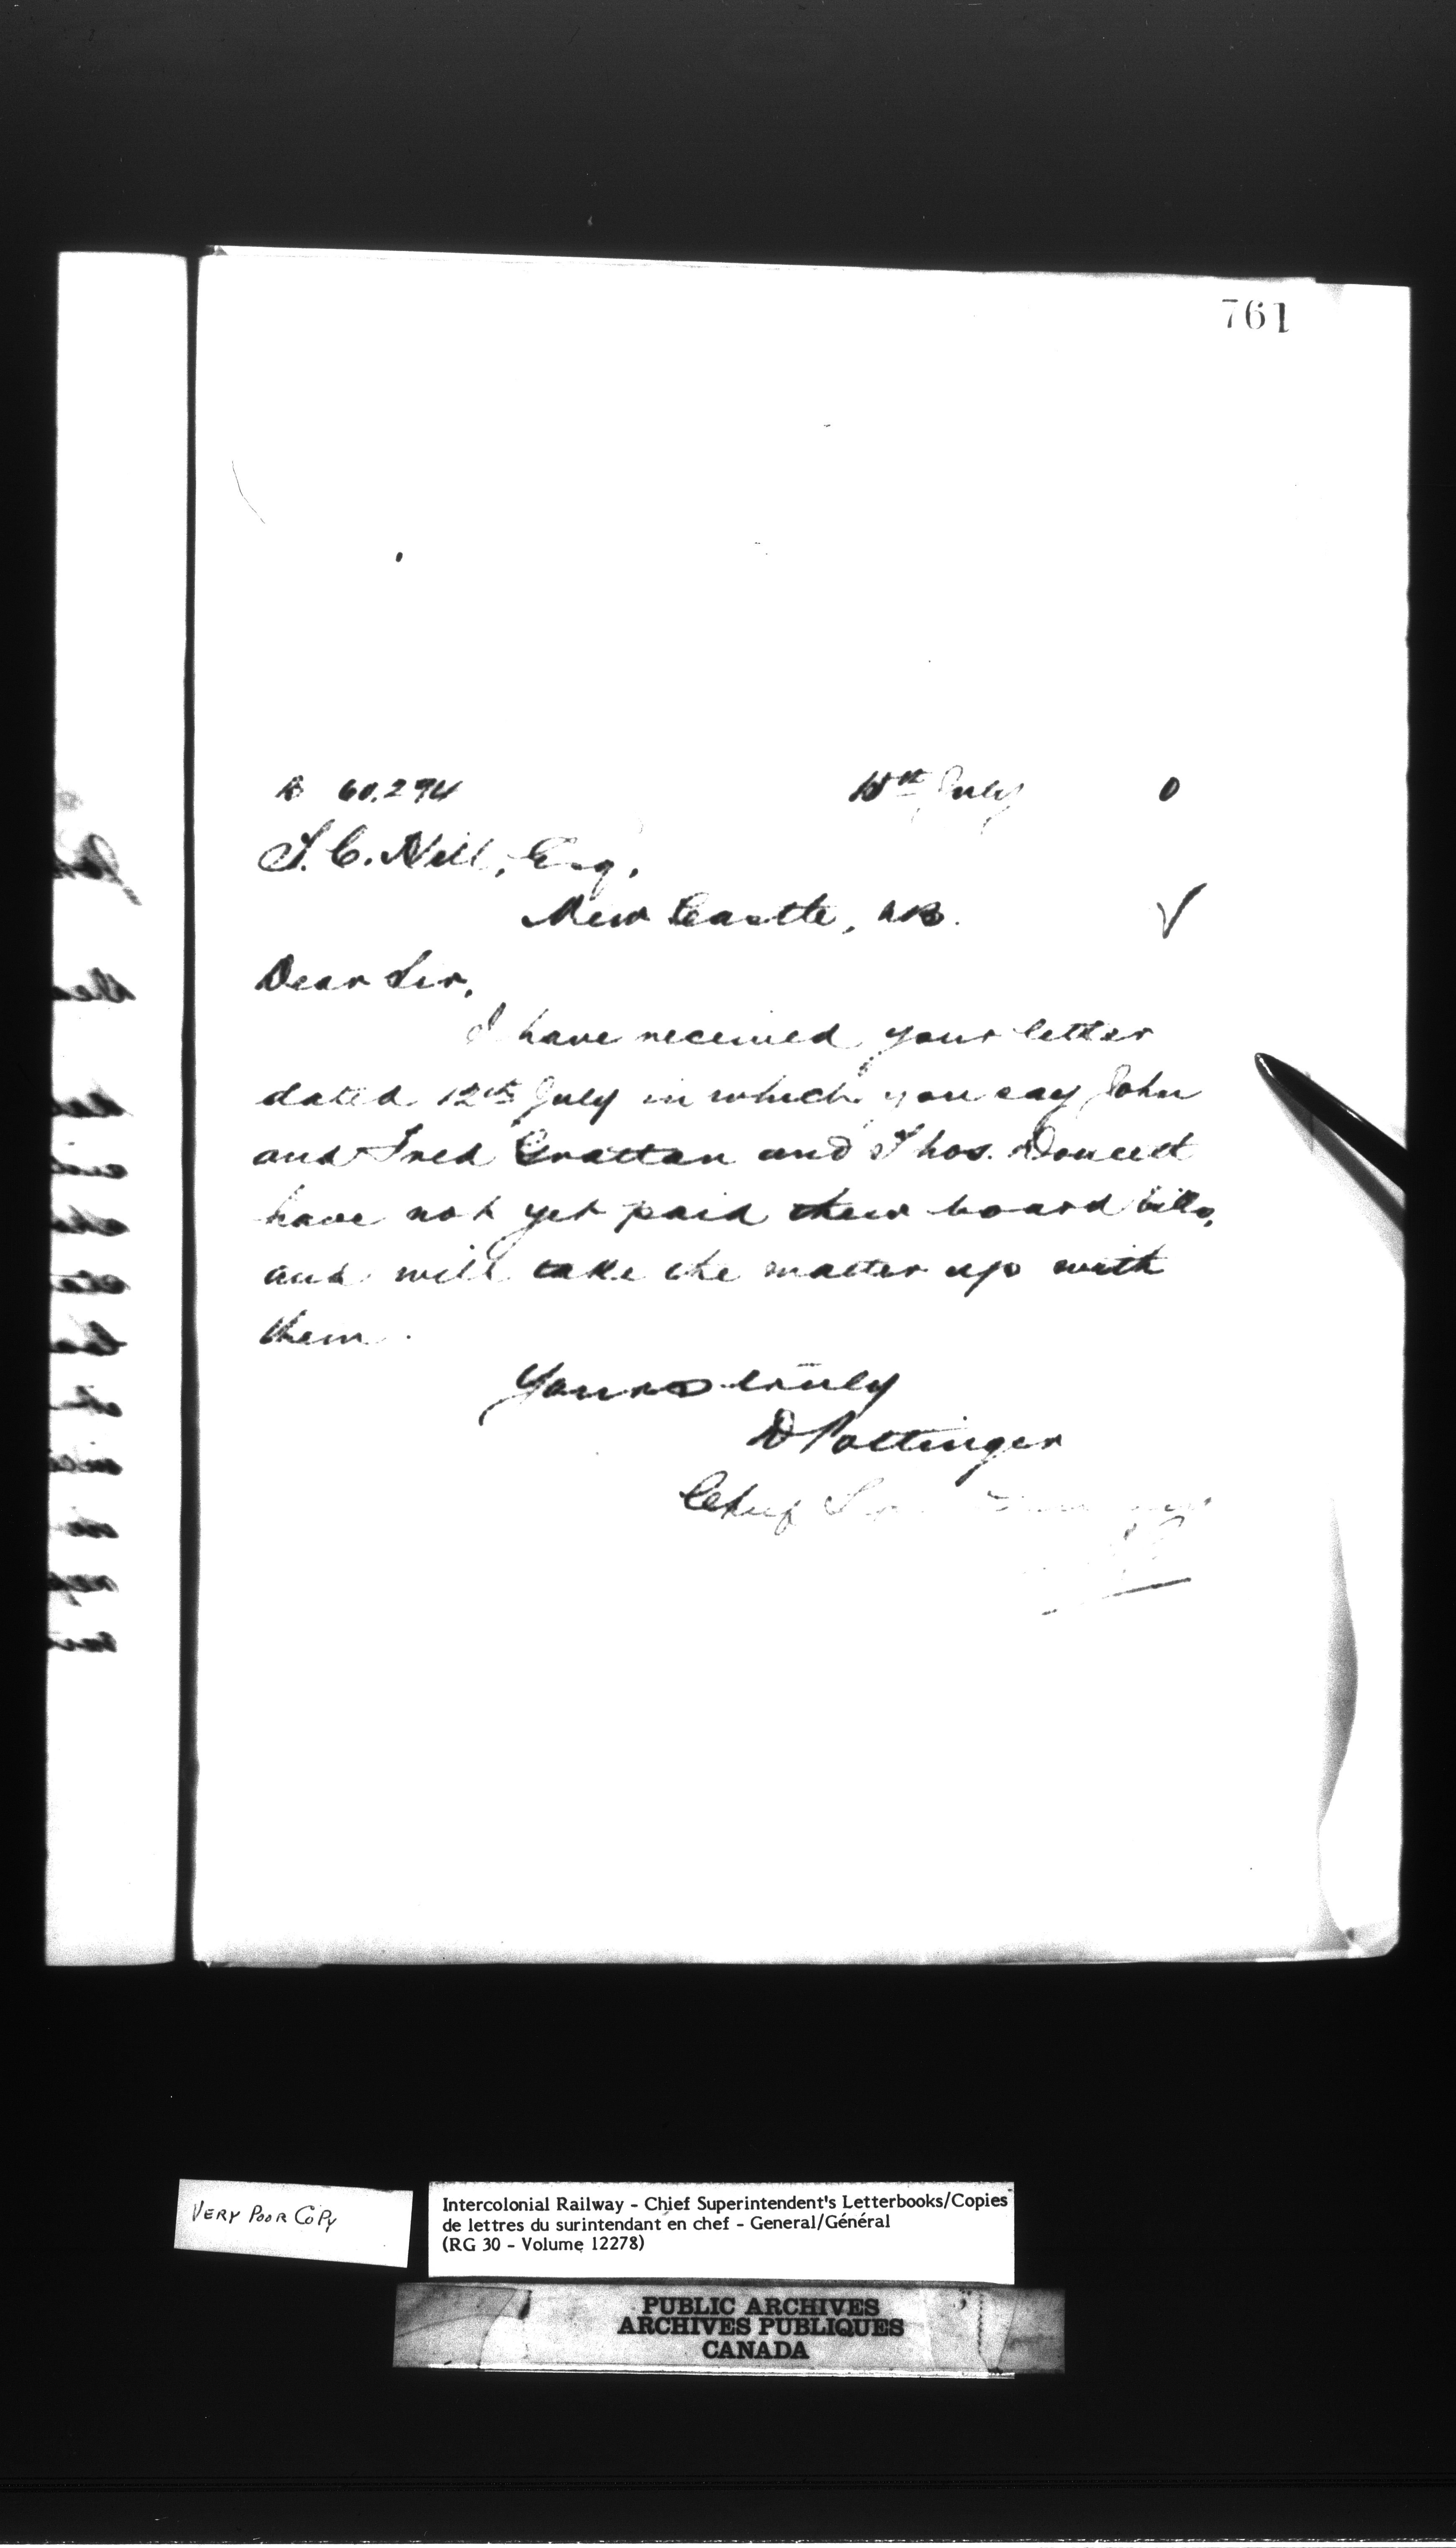 761
60,294
July 0
T. C. Nill, Esq,
New Castle, NB.
Dear Sir,
I have received your letter
dated 12th July in which you say John
and Fred Grattan and Thos. Doucett
have not yet paid their board bills,
and will take the matter up with
them.
Yours truly
D Pottinger
Chief
VERY POOR COPY
Intercolonial Railway - Chief Superintendent's Letterbooks/Copies
de lettres du surintendant en chef - General/Général
(RG 30 - Volume 12278)
PUBLIC ARCHIVES
ARCHIVES PUBLIQUES
CANADA